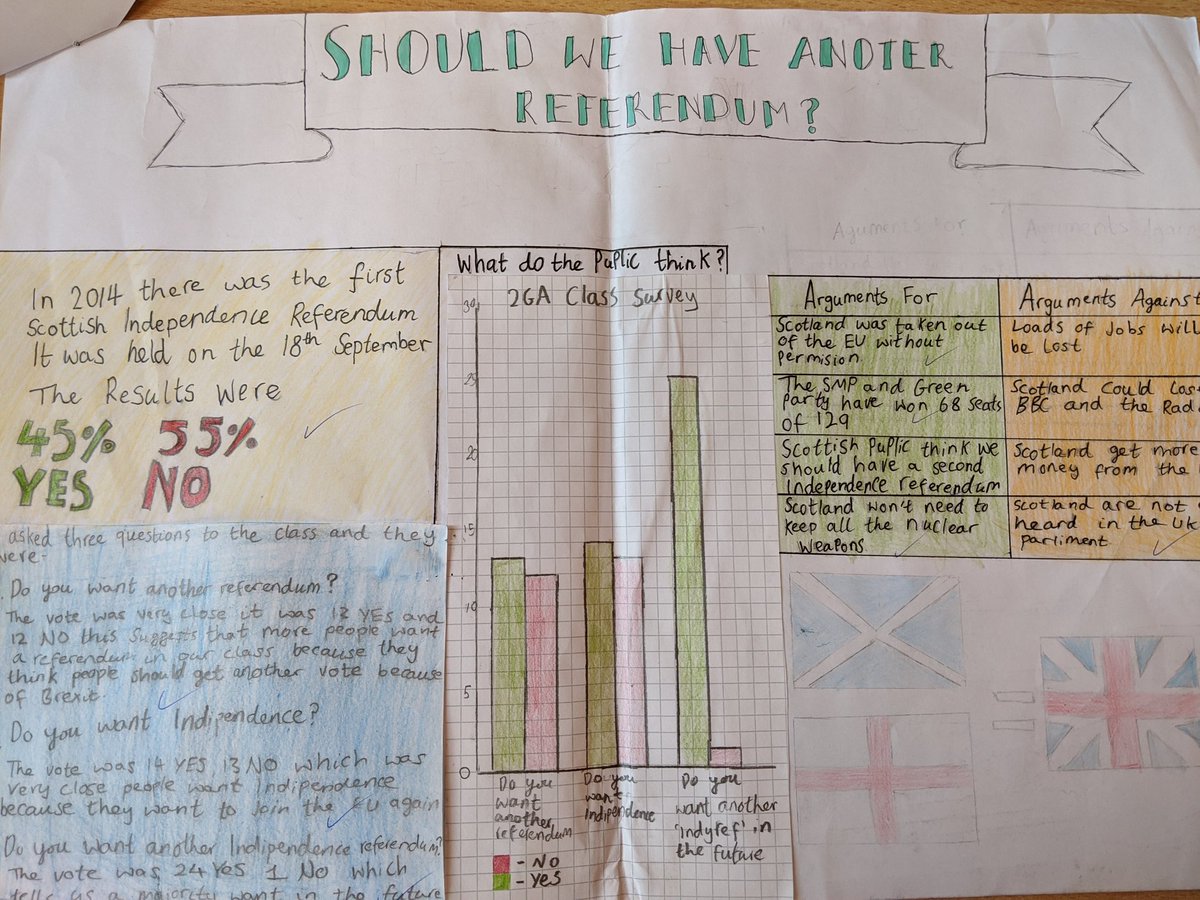 SHOULD WE HAVE ANOTER
REFERENDUM?
In 2014 there was the first
Scottish Independence Referendum
It was held on the 18th September
The Results Were
45% 55%
YES NO
asked three questions to the class and they
were-
Do you want another referendum?
The vote was very close it was 12 YES and
12 NO this suggests that more people want
a referendum in our class because they
think people should get another vote because
of Brexit.
Do you want Indipendence?
The vote was 14 YES 13 NO which was
very close people want Indipendence
because they want to join the EU again
Do you want another Indipendence referendum?
The vote was 24 Yes 1 No which
tells us a majority want in the future
What do the Puplic think?
2GA Class Survey
30
25
20
15
10
5
0
Do you
want
another
referendum
Do you
want
Indipendence
Do you
want another
'indyref' in
the future
- No
- Yes
Aguments for
Arguments For
Scotland was taken out
of the EU without
permision
The SMP and Green
Party have won 68 seats
of 129
Scottish Puplic think we
should have a second
Independence referendum
Scotland won't need to
keep all the nuclear
weapons
Arguments Against
Loads of Jobs will
be lost
Scotland could
BBC and the
Scotland get more
money from the
Scotland are not
heard in the UK
parliment